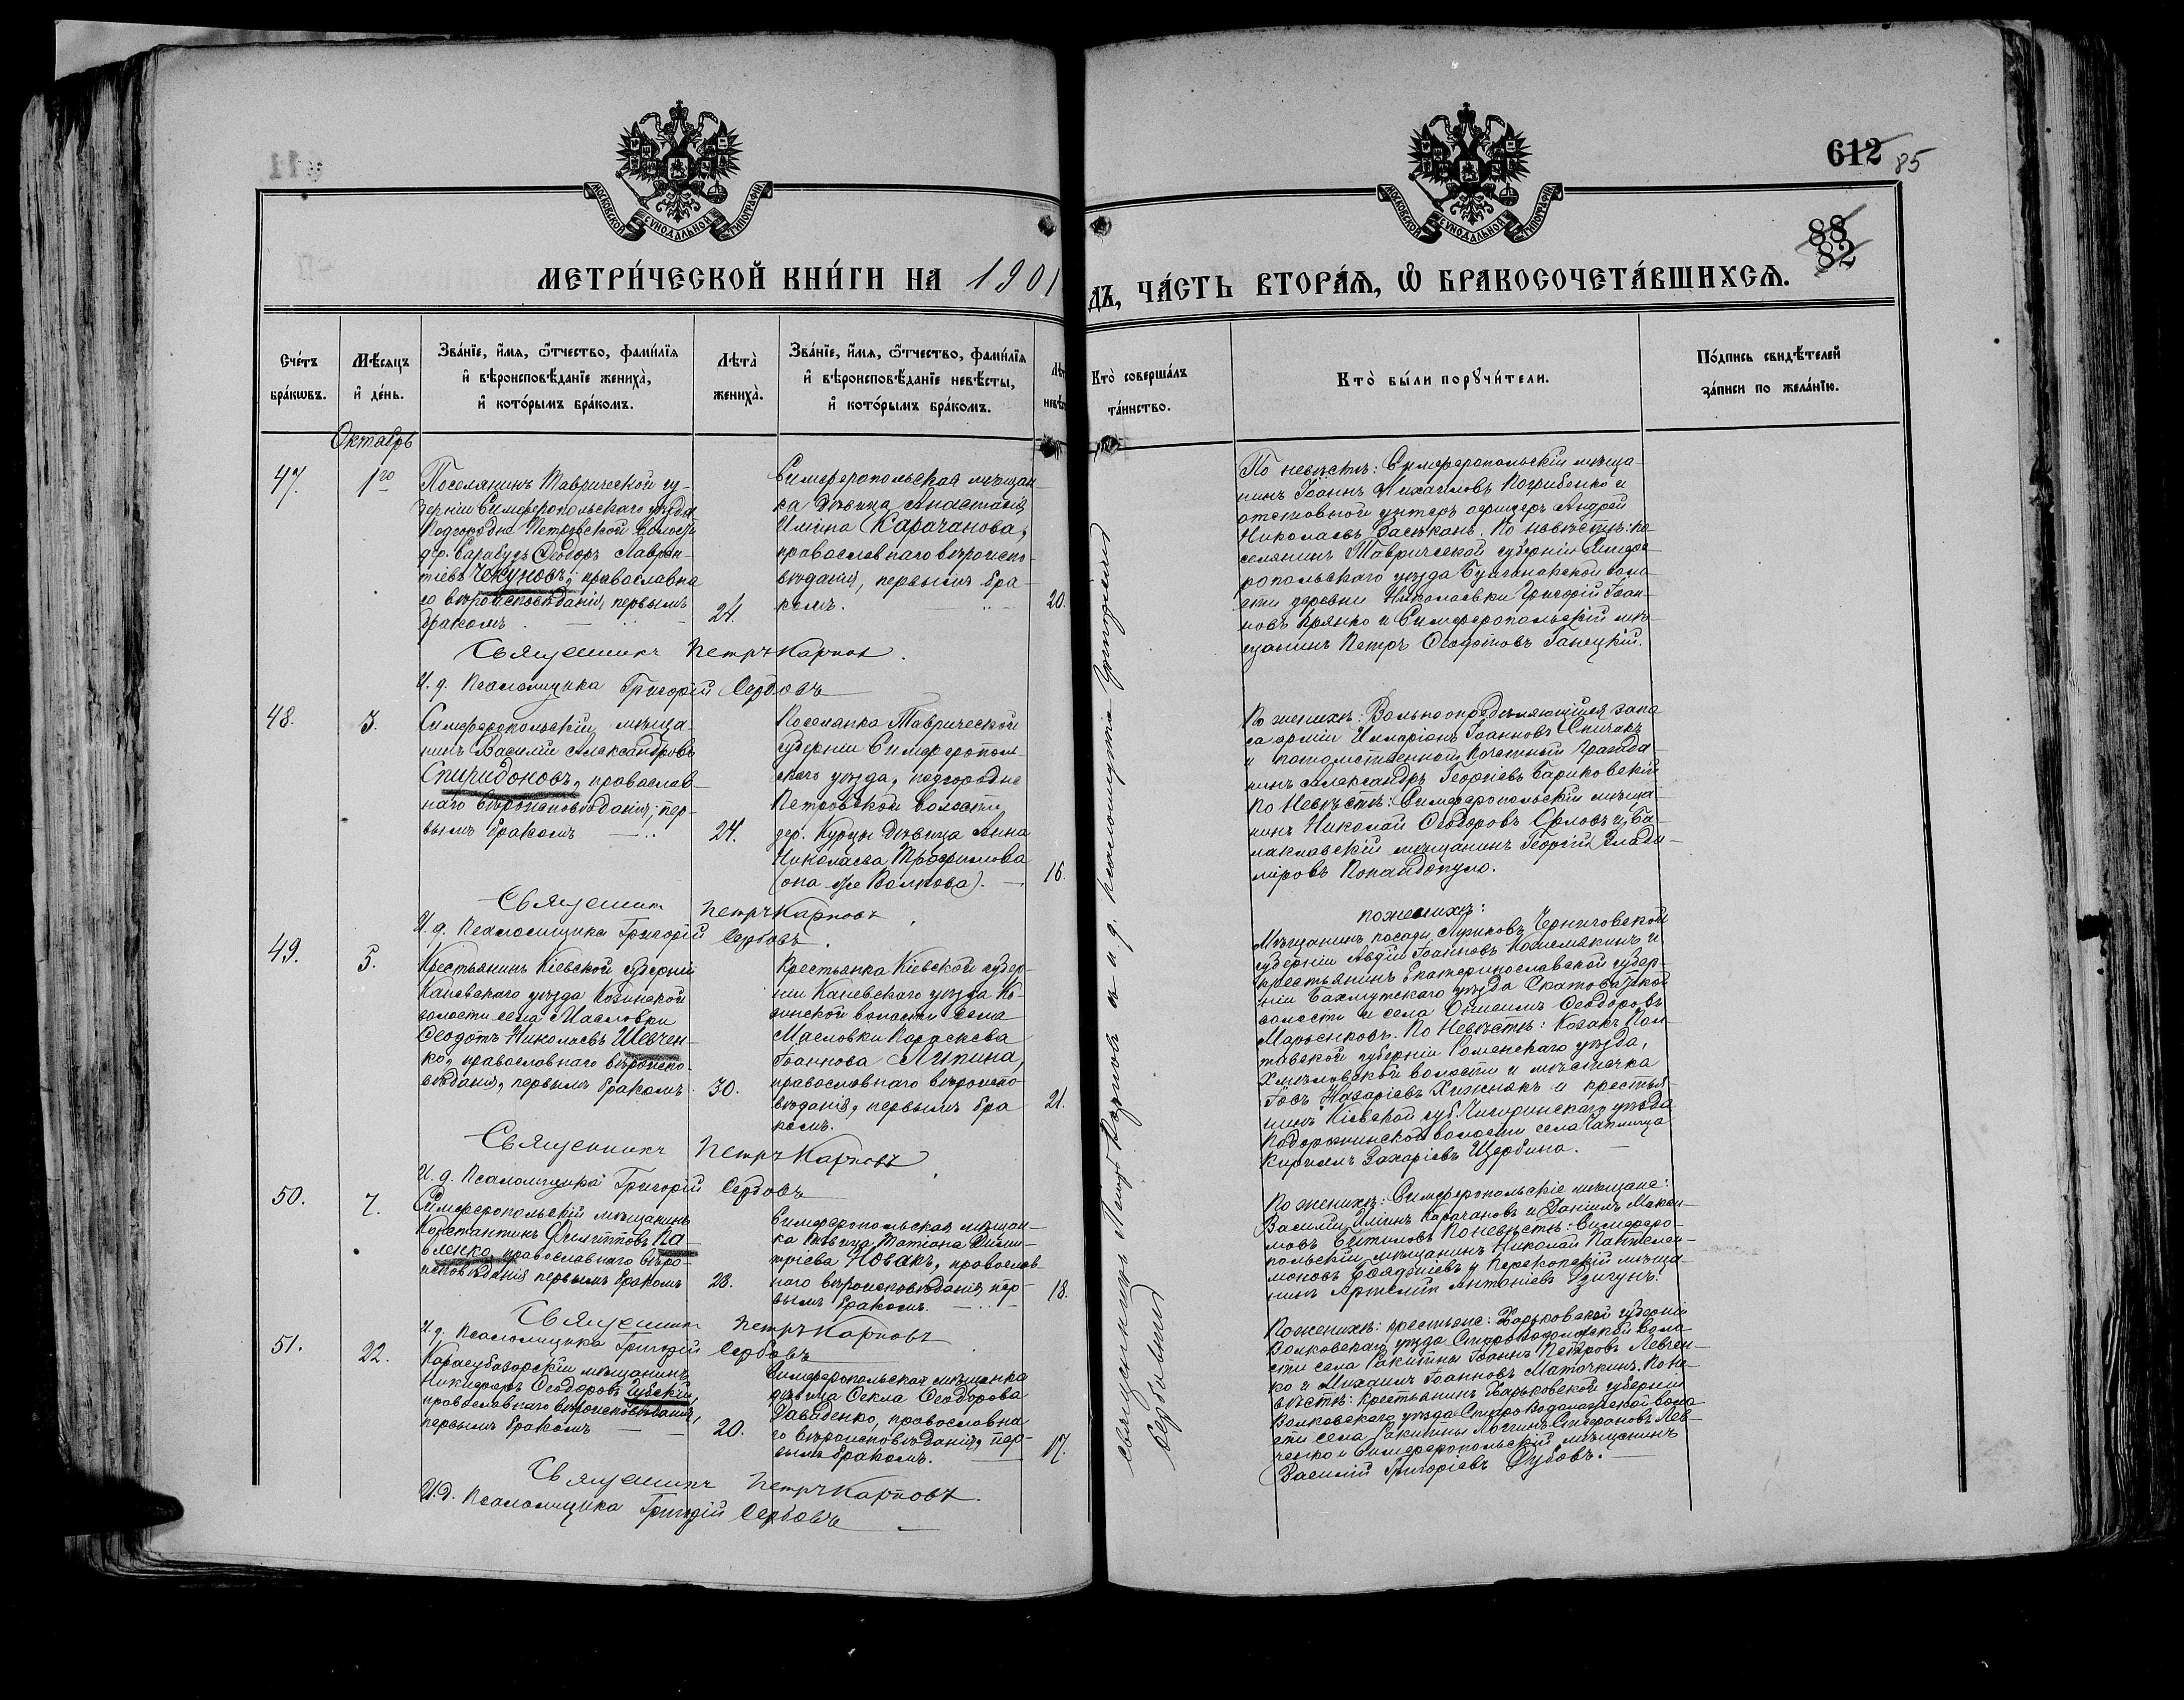 612 85
88
82
МОСКОВСКОЙ СУНОДАЛЬНОЙ ТИПОГРАФІИ
МОСКОВСКОЙ СУНОДАЛЬНОЙ ТИПОГРАФІИ
МЕТРИ́ЧЕСКОЙ КНИ́ГИ НА 1901
ДЪ, ЧА́СТЬ ВТОРА́Ѧ, Ѽ БРАКОСОЧЕТА́ВШИХСѦ.
Сче́тъ бра́кѡвъ.
Мѣ́сяцъ и҆ де́нь.
Зва́нїе, и҆́мѧ, ѻ҆́тчество, фами́лїѧ и҆ вѣроисповѣ́данїе жениха̀, и҆ кото́рымъ бра́комъ.
Лѣта̀ жениха̀.
Зва́нїе, и҆́мѧ, ѻ҆́тчество, фами́лїѧ и҆ вѣроисповѣ́данїе невѣ́сты, и҆ кото́рымъ бра́комъ.
Кто̀ соверша́лъ та́инство.
Кто̀ бы́ли порꙋчи́тели.
По́дпись свидѣ́телей за́писи по жела́нїю.
Октябрь
47.
1го
Поселянинъ Таврической гу-
берніи Симферопольскаго уѣзда
Подгородне Петровской волости
дер. Сарабузъ Ѳеодоръ Лаврен-
тіевъ Чекуновъ, православна
го вѣроисповѣданія, первымъ
бракомъ.
24.
Симферопольская мѣщан
ка дѣвица Анастасія
Иліина Карачанова,
православнаго вѣроиспо-
вѣданія, первымъ бра-
комъ.
20.
По невѣстѣ: Симферопольскій мѣща-
нинъ Іоаннъ Михаиловъ Погрибенко и
отставной унтеръ офицеръ Андрей
Николаевъ. По невѣстѣ: по
селянинъ Таврической губерніи Симфе
ропольскаго уѣзда Булганакской воло
сти деревни Николаевки Григорій Іоан-
новъ Прянко и Симферопольскій мѣ-
щанинъ Петръ Ѳеодотовъ Ганецкій.
Священникъ Петръ Карповъ.
И. д. Псаломщика Григорій Сербовъ
48.
3.
Симферопольскій мѣща-
нинъ Василій Александровъ
Спиридоновъ, православ-
наго вѣроисповѣданія, пер-
вымъ бракомъ
24.
Поселянка Таврической
губерніи Симферополь-
скаго уѣзда, подгородне
Петровской волости,
дер. Курцы дѣвица Анна
Николаева Трофимова
(она же Волкова).
16.
По женихѣ: Вольноопредѣляющійся запа
са арміи Илларіонъ Іоанновъ Спичакъ
и потомственный почетный гражда-
нинъ Александръ Георгіевъ Бариковскій
По невѣстѣ: Симферопольскій мѣща-
нинъ Николай Ѳеодоровъ Орловъ и Ба-
лаклавскій мѣщанинъ Георгій Влади-
міровъ Попандопуло.
Священникъ Петръ Карповъ
И. д. Псаломщика Григорій Сербовъ.
49.
5.
Крестьянинъ Кіевской губерніи
Каневскаго уѣзда Козинской
волости села Масловки
Ѳеодотъ Николаевъ Шевчен-
ко, православнаго вѣроиспо-
вѣданія, первымъ бракомъ.
30.
Крестьянка Кіевской губер-
ніи Каневскаго уѣзда Ко-
зинской волости села
Масловки Параскева
Іоаннова Липина,
православнаго вѣроиспо-
вѣданія, первымъ бра
комъ.
21.
По женихѣ:
Мѣщанинъ посада Лужковъ Черниговской
губерніи Авдій Іоанновъ Кожемякинъ и
крестьянинъ Екатеринославской губер-
ніи Бахмутскаго уѣзда Скотоватской
волости и села Онисимъ Ѳеодоровъ
Марьенковъ. По невѣстѣ: Козакъ Пол-
тавской губерніи Роменскаго уѣзда,
Хмѣловской волости и мѣстечка
Іовъ Назаріевъ Хижнякъ и крестья-
нинъ Кіевской губ. Чигиринскаго уѣзда
Подорожинской волости села
Кириллъ Захаріевъ Щербина.
Священникъ Петръ Карповъ
И. д. Псаломщика Григорій Сербовъ
50.
7.
Симферопольскій мѣщанинъ
Константинъ Филипповъ Па-
оленко, православнаго вѣро-
исповѣданія первымъ бракомъ
23.
Симферопольская мѣщан-
ка дѣвица Татіана Дими-
тріева Новакъ, православ
наго вѣроисповѣданія, пер-
вымъ бракомъ.
18.
По женихѣ: Симферопольскіе мѣщане:
Василій Иліинъ Карачановъ и Даніилъ Макси-
мовъ. По невѣстѣ: Симферо-
польскій мѣщанинъ Николай Пантелеи-
моновъ и Перекопскій мѣща-
нинъ Антоніевъ
Священникъ Петръ Карповъ
И. д. Псаломщика Григорій Сербовъ
51.
22.
Карасубазарскій мѣщанинъ
Никифоръ Ѳеодоровъ Дубскій,
православнаго вѣроисповѣданія,
первымъ бракомъ
20.
Симферопольская мѣщанка
дѣвица Ѳекла Ѳеодорова
Давиденко, православна
го вѣроисповѣданія, пер-
вымъ бракомъ.
17.
По женихѣ: крестьяне: Харьковской губерніи
Волковскаго уѣзда Старо Водолажской воло
сти села Ракитны Іоаннъ Петровъ Левчен-
ко и Михаилъ Іоанновъ Маточкинъ. По не-
вѣстѣ: крестьянинъ Харьковской губерніи
Волковскаго уѣзда Старо Водолажской воло
сти села Ракитны Логгинъ Стефановъ Лев-
ченко и Симферопольскій мѣщанинъ
Василій Григоріевъ Дубовъ.
Священникъ Петръ Карповъ.
И. д. Псаломщика Григорій Сербовъ
Священникъ Петръ Карповъ и и. д. псаломщика Григорій